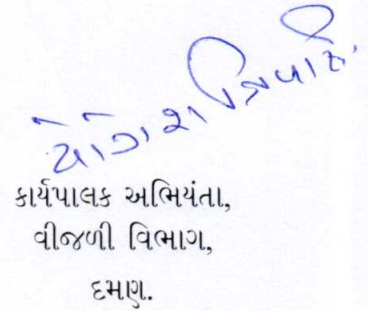 યોગેશ ત્રિપાઠી.
કાર્યપાલક અભિયંતા,
વીજળી વિભાગ,
દમણ.